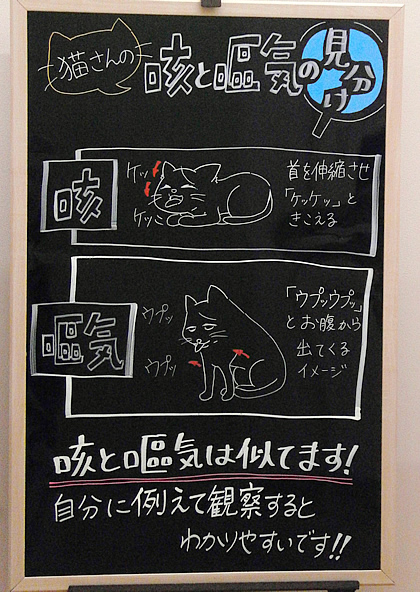 猫さんの
咳と嘔気の見分け
咳
ケッ
ケッ
首を伸縮させ
「ケッケッ」と
きこえる
嘔気
ウプッ
ウプッ
「ウプッウプッ」
とお腹から
出てくる
イメージ
咳と嘔気は似てます!
自分に例えて観察すると
わかりやすいです!!